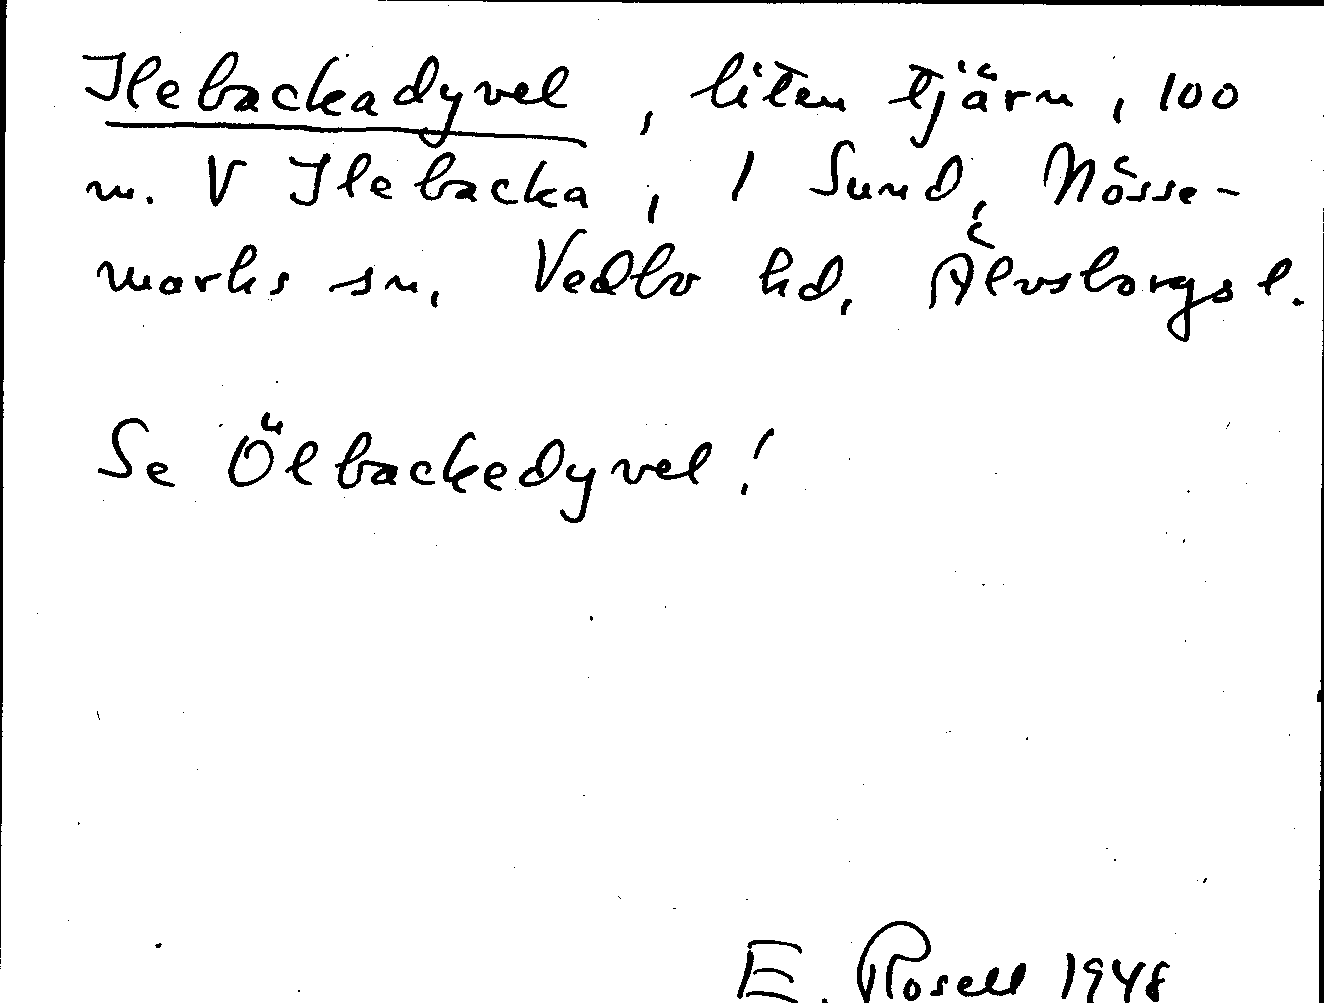 Ilebackadyvel, liten tjärn, 100
m. V Ilebacka, 1 Sund, Nösse-
marks sn, Vedbo hd, Älvsborgs l.
Se Ölbackedyvel!
E. Rosell 1948